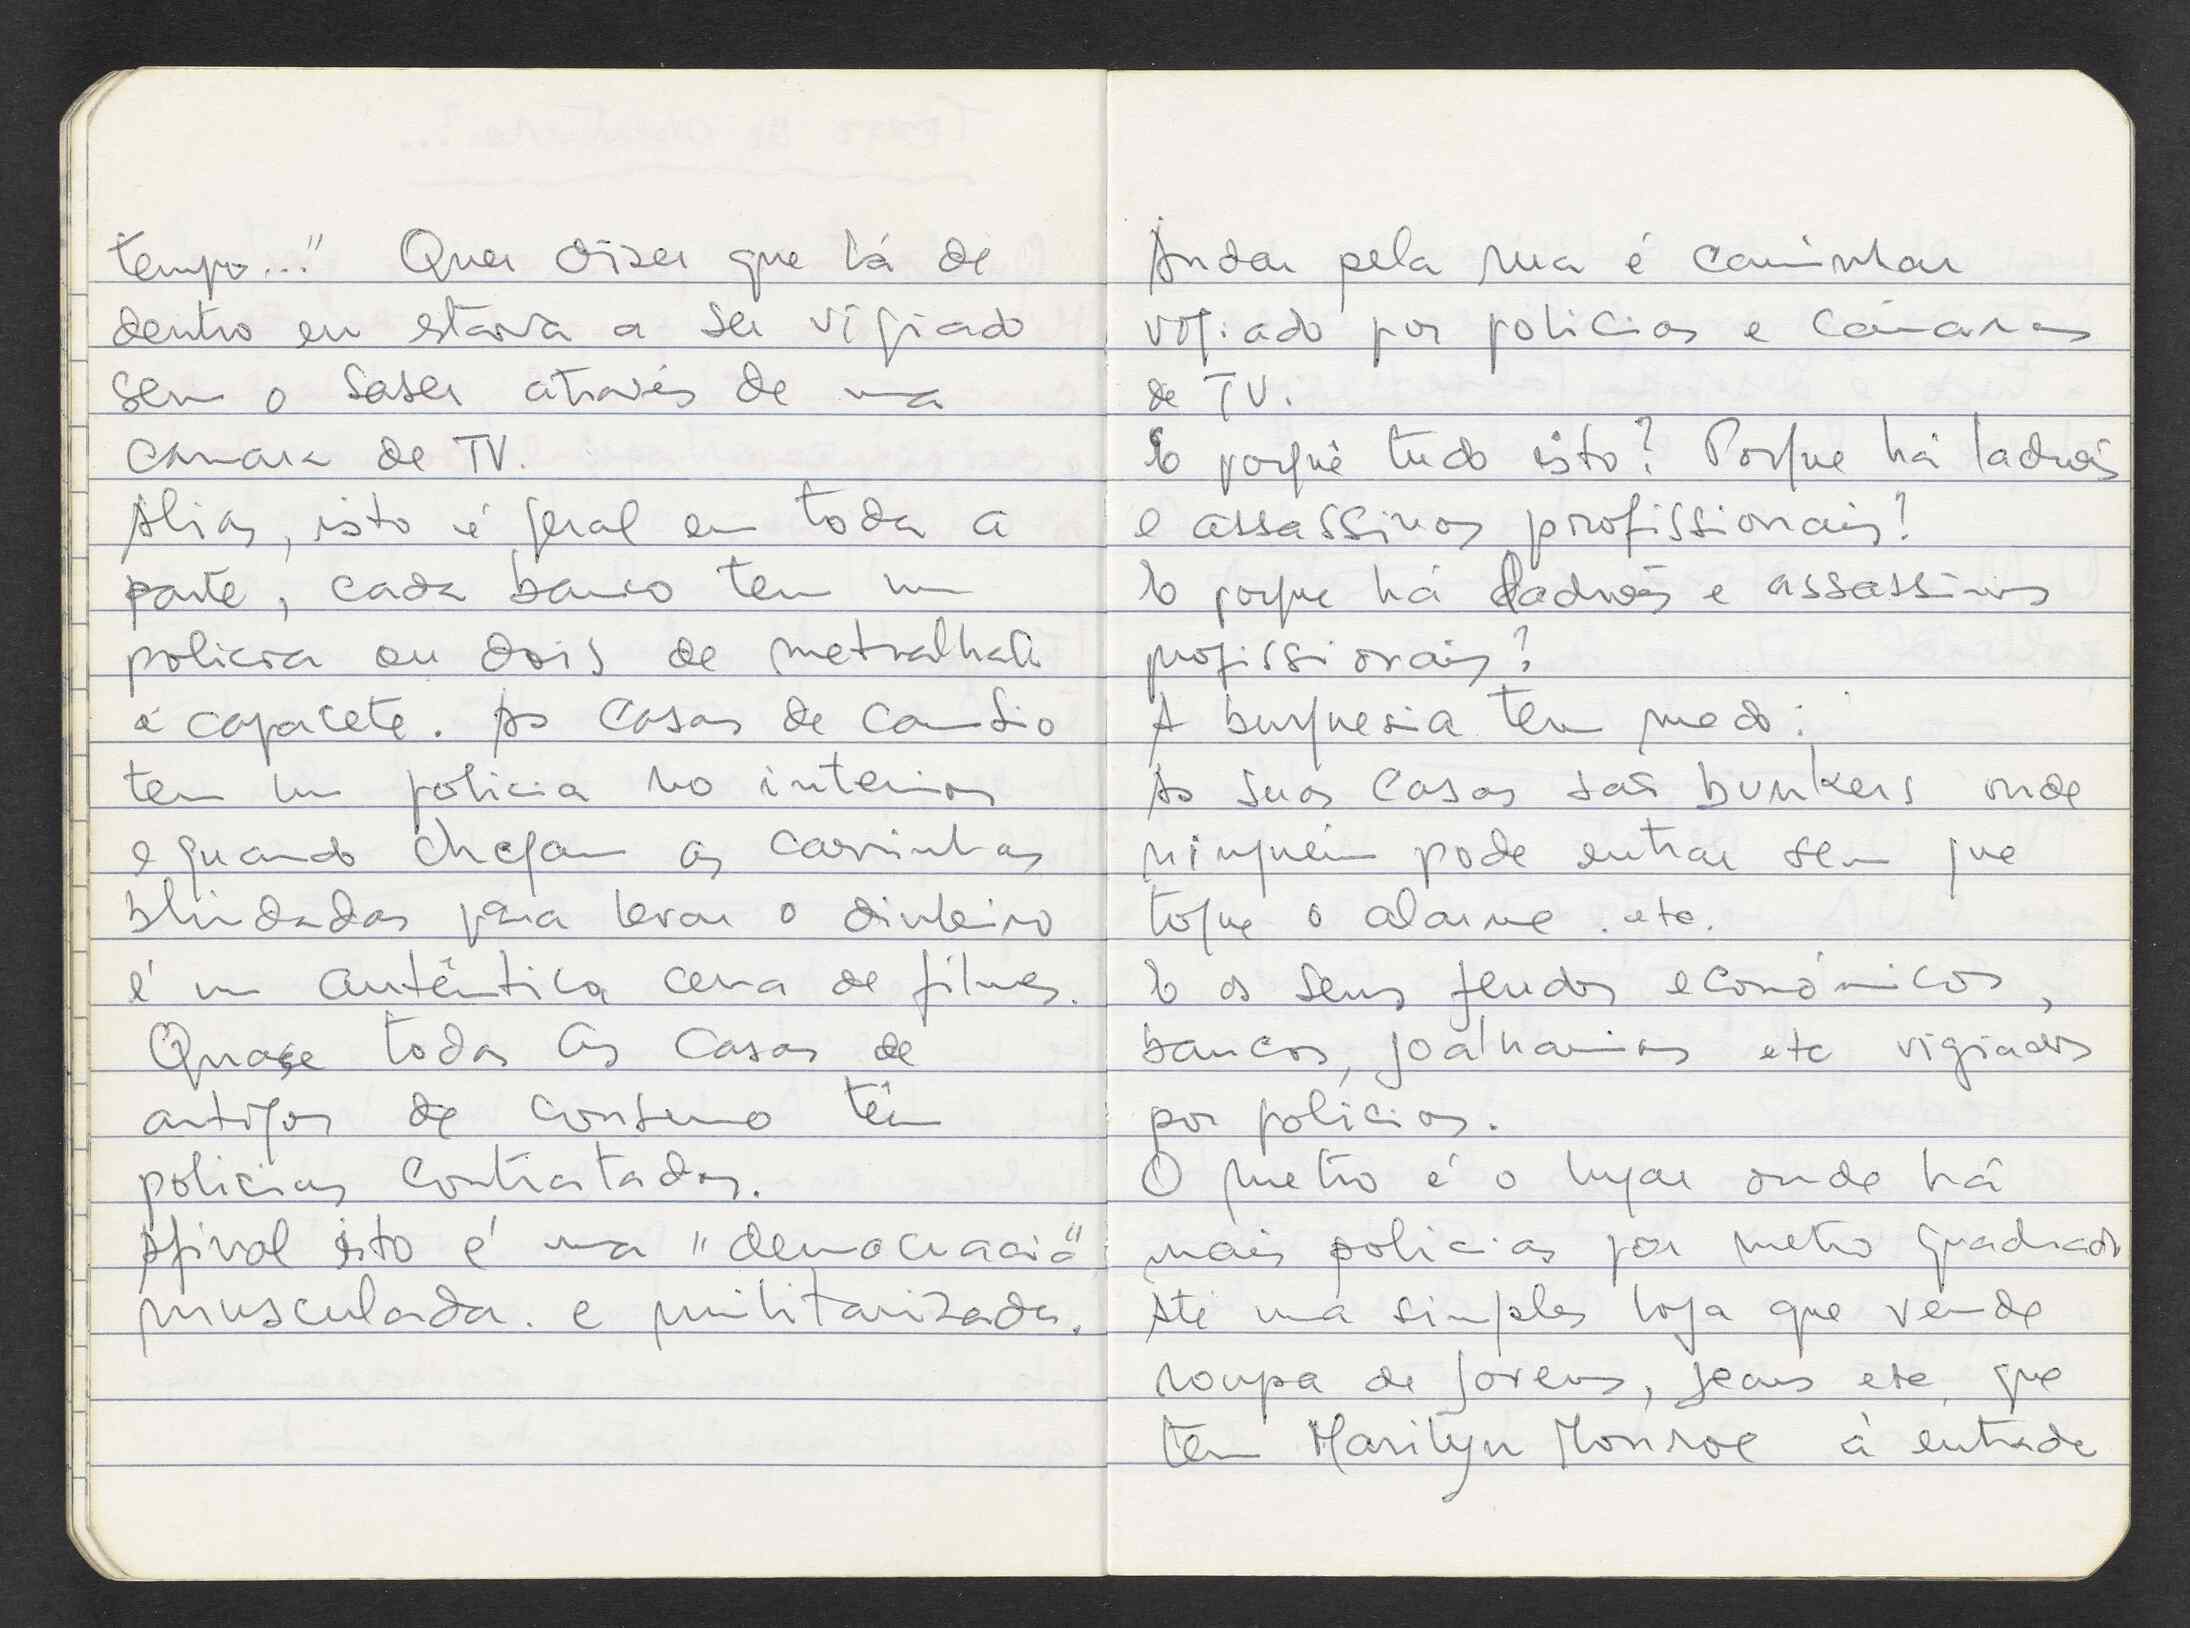 tempo..." Quer dizer que lá de
dentro eu estava a ser vigiado
sem o saber através de uma
camara de TV.
Alias, isto é geral em toda a
parte, cada banco tem um
policia ou dois de metralhad.
e capacete. As casas de cambio
tem um policia no interior
e quando chegam as carrinhas
blindadas para levar o dinheiro
é um autêntica cena de filmes.
Quase todas as casas de
artigos de consumo têm
policias contratados.
Afinal isto é uma "democracia"
musculada. e militarizada.
Andar pela rua é caminhar
vigiado por policias e câmaras
de TV.
E porquê tudo isto? Porque há ladrões
e assassinos profissionais?
E porque há ladrões e assassinos
profissionais?
A burguesia tem medo:
As suas casas são bunkers onde
ninguém pode entrar sem que
toque o alarme. etc.
E os seus feudos económicos,
bancos, joalharias etc vigiados
por polícias.
O metro é o lugar onde há
mais policias por metro quadrado
Até uma simples loja que vende
roupa de jovens, jeans etc, que
tem Marilyn Monroe à entrada